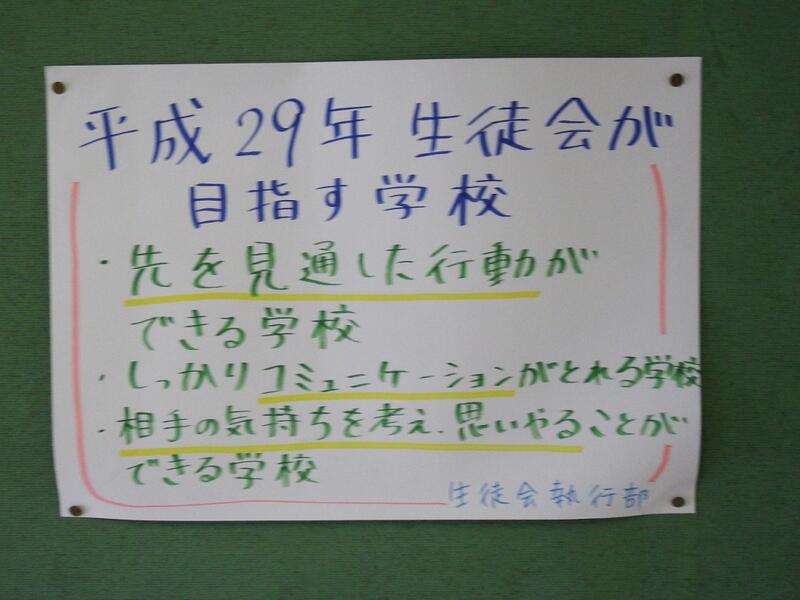 平成29年 生徒会が
目指す学校
・先を見通した行動が
できる学校
・しっかりコミュニケーションがとれる学校
・相手の気持ちを考え、思いやることが
できる学校
生徒会執行部